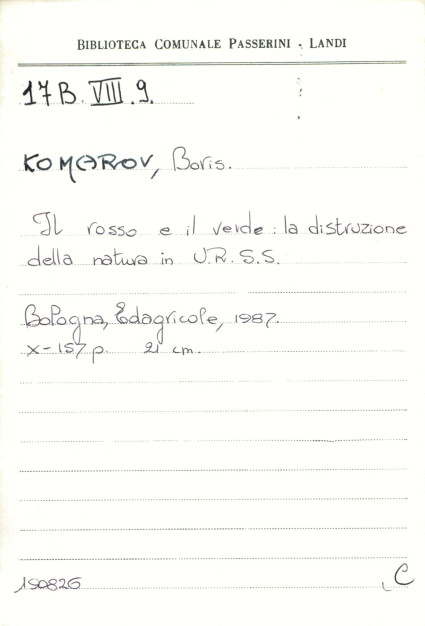 BIBLIOTECA COMUNALE PASSERINI - LANDI
17B. VIII. 9.
KOMAROV, Boris.
Il rosso e il verde : la distruzione
della natura in U.R.S.S.
Bologna, Edagricole, 1987.
X-157 p. 21 cm.
190826
C